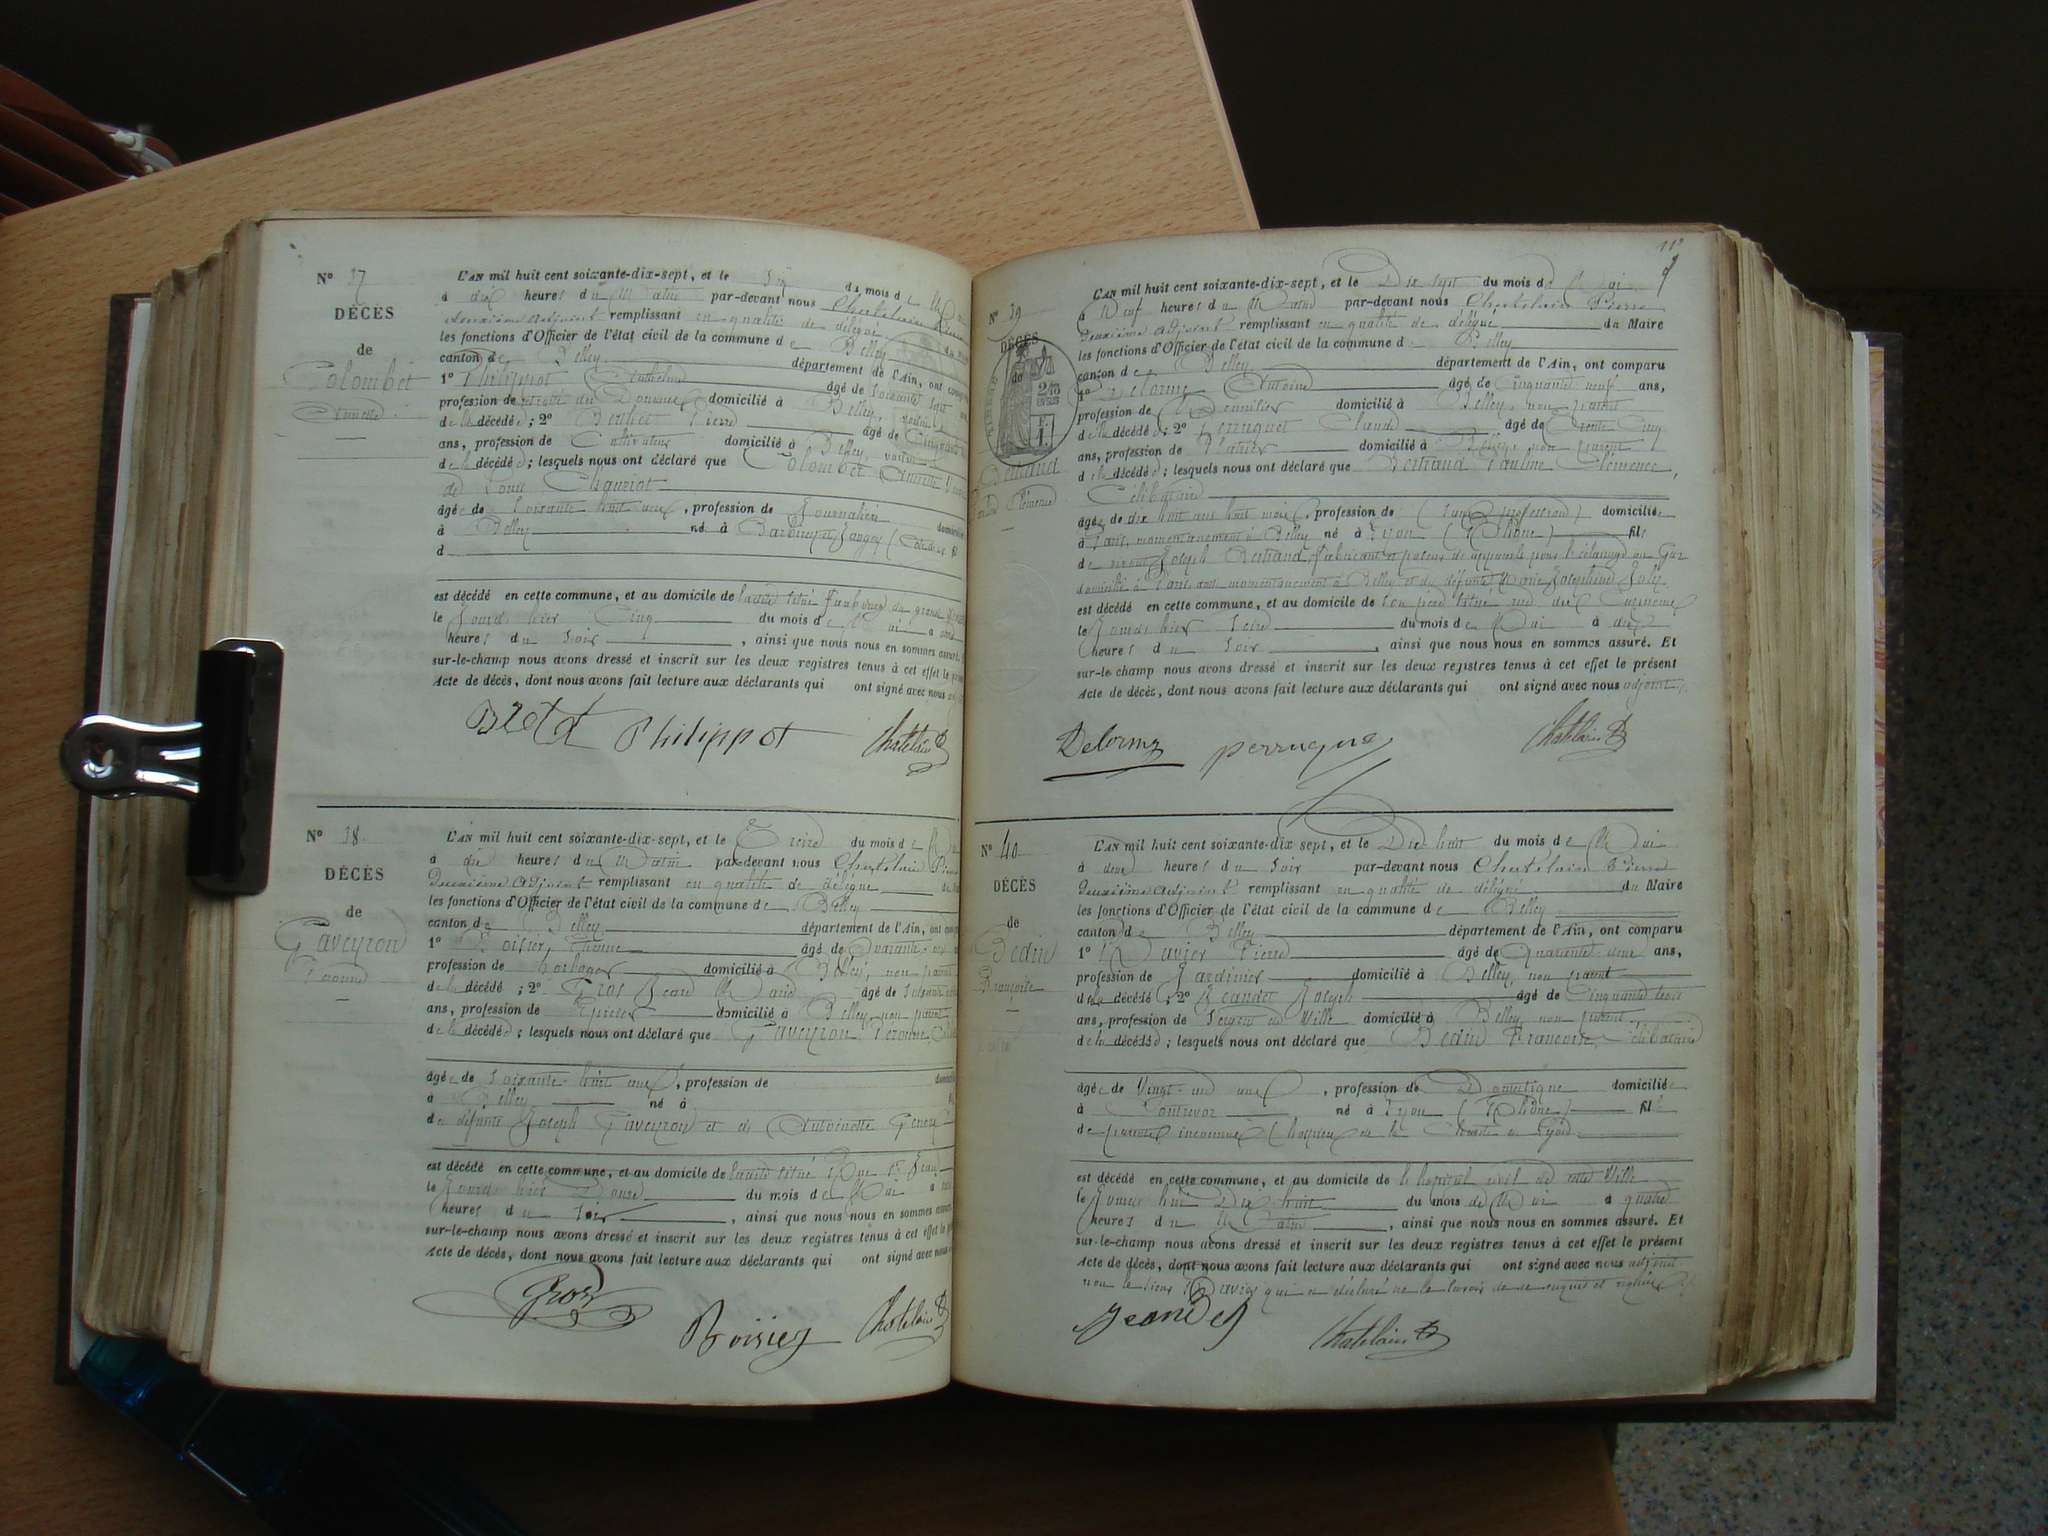 N° 37
DÉCÈS
de
Colombet
L'AN mil huit cent soixante-dix-sept, et le Six du mois de
à dix heures du Matin par-devant nous Chatelain
Deuxième adjoint remplissant en qualité de délégué
les fonctions d'Officier de l'état civil de la commune de Belley
canton de Belley département de l'Ain, ont
1° Philippot Anthelme âgé de Soixante Sept
profession de retraité des Douanes domicilié à Belley, voisin
de la décédée; 2° Pierre âgé de
ans, profession de Cultivateur domicilié à Belley, voisin
de la décédée; lesquels nous ont déclaré que Colombet
de Louis
âgée de Soixante huit ans, profession de Journalière
à Belley né à
d
est décédée en cette commune, et au domicile de situé Faubourg du
le Jour d'hier Cinq du mois de Mai à
heures du Soir, ainsi que nous nous en sommes assuré.
sur-le-champ nous avons dressé et inscrit sur les deux registres tenus à cet effet le
Acte de décès, dont nous avons fait lecture aux déclarants qui ont signé avec nous
Philippot Chatelain
N° 38
DÉCÈS
de
Gaveyron
L'AN mil huit cent soixante-dix-sept, et le Treize du mois de
à dix heures du Matin par-devant nous Chatelain
Deuxième adjoint remplissant en qualité de délégué
les fonctions d'Officier de l'état civil de la commune de Belley
canton de Belley département de l'Ain, ont
1° Roisier Etienne âgé de Quarante
profession de horloger domicilié à Belley, non parent
de la décédée; 2° Gros Jean Marie âgé de
ans, profession de Epicier domicilié à Belley, non parent
de la décédée; lesquels nous ont déclaré que Gaveyron
âgée de Soixante-huit ans, profession de
à Belley né à
de défunt Joseph Gaveyron et de Antoinette
est décédée en cette commune, et au domicile de situé Rue St Jean
le Jour d'hier Douze du mois de Mai à
heures du Soir, ainsi que nous nous en sommes
sur-le-champ nous avons dressé et inscrit sur les deux registres tenus à cet effet le
Acte de décès, dont nous avons fait lecture aux déclarants qui ont signé avec
Gros Roisier Chatelain
N° 39
DÉCÈS
de
Clémence
L'AN mil huit cent soixante-dix-sept, et le Dix sept du mois de Mai
à Neuf heures du Matin par-devant nous Chatelain Pierre
Deuxième adjoint remplissant en qualité de délégué du Maire
les fonctions d'Officier de l'état civil de la commune de Belley
canton de Belley département de l'Ain, ont comparu
1° Delorme Antoine âgé de Cinquante neuf ans,
profession de domicilié à Belley, non parent
de la décédée; 2° Perruquet Claude âgé de Trente Cinq
ans, profession de Platrier domicilié à Belley, non parent
de la décédée; lesquels nous ont déclaré que Bertrand Pauline Clémence,
Célibataire
âgée de dix huit ans huit mois, profession de (sans profession) domiciliée
à Paris, momentanément à Belley né à Lyon (Rhône) fille
de vivant Joseph Bertrand, fabricant et poseur de appareils pour l'éclairage au Gaz
domicilié à Paris, momentanément à Belley et de défunte Marie Joséphine Joly
est décédée en cette commune, et au domicile de son père situé rue des
le Jour d'hier Seize du mois de Mai à dix
heures du Soir, ainsi que nous nous en sommes assuré. Et
sur-le-champ nous avons dressé et inscrit sur les deux registres tenus à cet effet le présent
Acte de décès, dont nous avons fait lecture aux déclarants qui ont signé avec nous adjoint.
Delorme Chatelain
N° 40
DÉCÈS
de
Bedin
Françoise
L'AN mil huit cent soixante-dix sept, et le Dix huit du mois de Mai
à deux heures du Soir par-devant nous Chatelain Pierre
Deuxième adjoint remplissant en qualité de délégué du Maire
les fonctions d'Officier de l'état civil de la commune de Belley
canton de Belley département de l'Ain, ont comparu
1° Pierre âgé de Quarante ans,
profession de Jardinier domicilié à Belley, non parent
de la décédée; 2° Jeandet Joseph âgé de Cinquante trois
ans, profession de Sergent de Ville domicilié à Belley, non parent
de la décédée; lesquels nous ont déclaré que Bedin Françoise, Célibataire
âgée de Vingt-un ans, profession de Domestique domiciliée
à Contrevoz né à Lyon (Rhône) fille
de parents inconnus (hospice de la Charité à Lyon)
est décédée en cette commune, et au domicile de l'hôpital civil de cette Ville
le Jourd'hui Dix-huit du mois de Mai à quatre
heures du Matin, ainsi que nous nous en sommes assuré. Et
sur-le-champ nous avons dressé et inscrit sur les deux registres tenus à cet effet le présent
Acte de décès, dont nous avons fait lecture aux déclarants qui ont signé avec nous adjoint
non le sieur qui a déclaré ne le savoir de ce requis et
Jeandet Chatelain